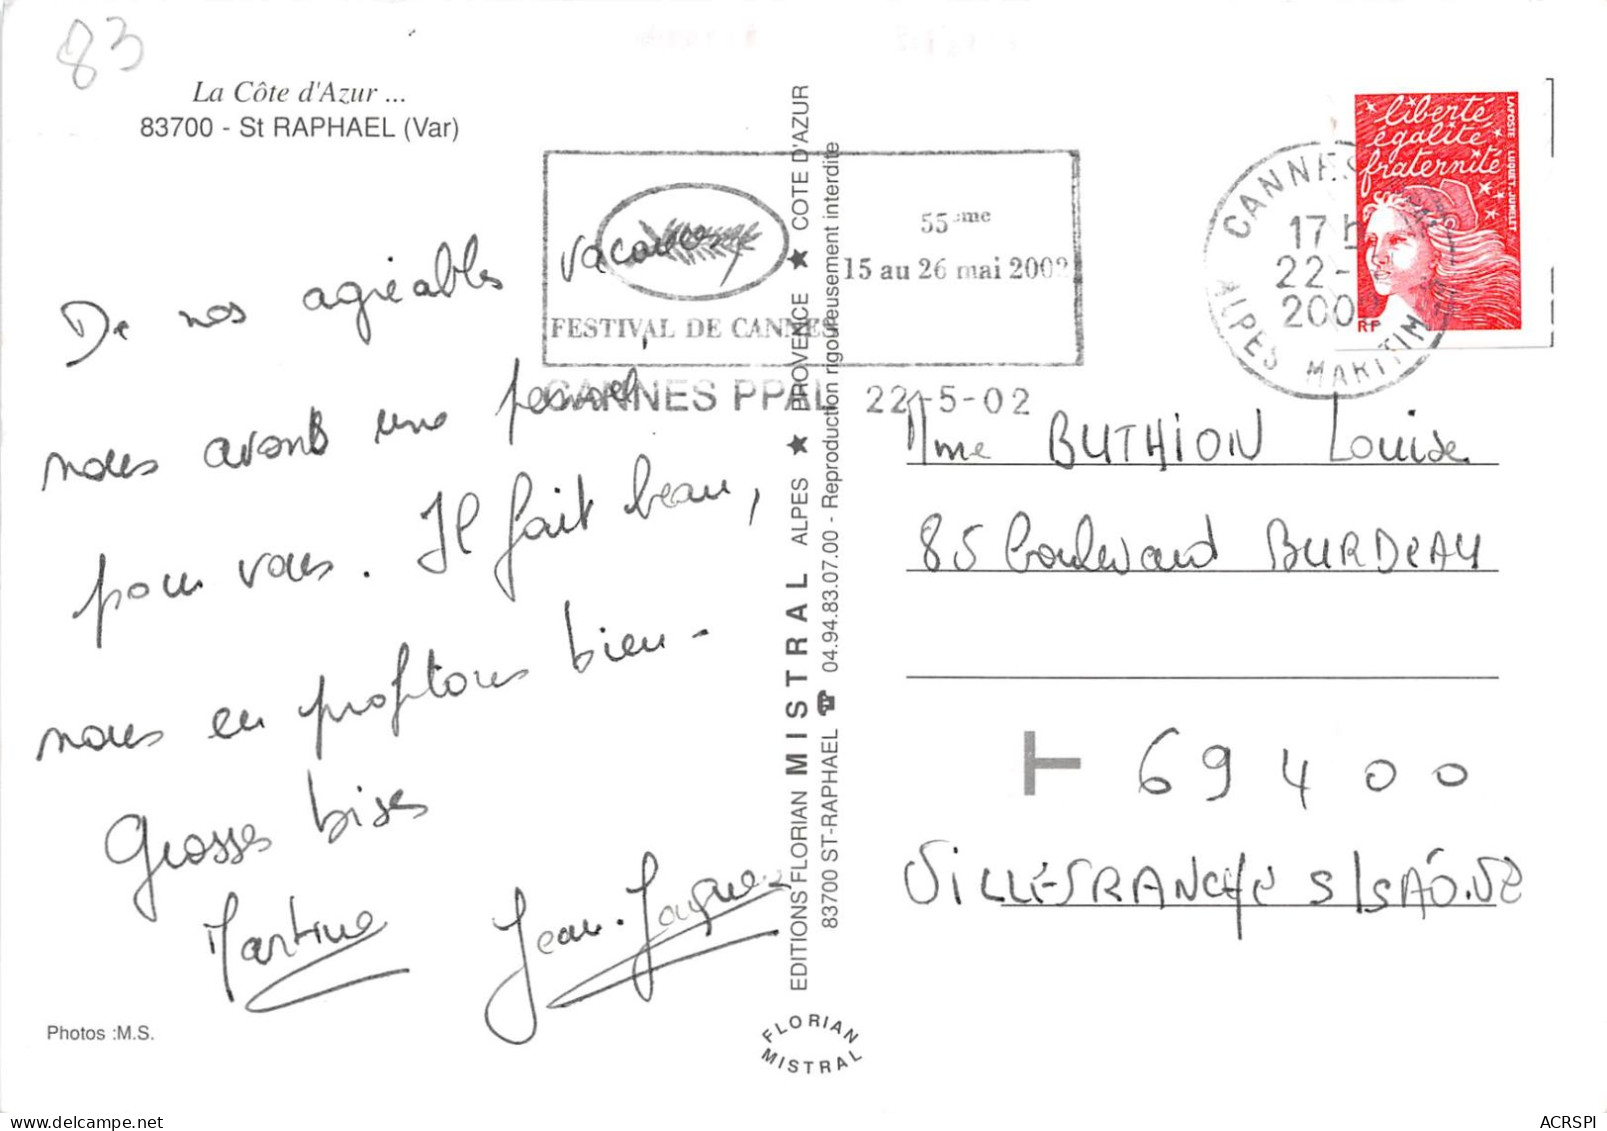 83
La Côte d'Azur ...
83700 - St RAPHAEL (Var)
De nos agréables vacances
nous avons une pensée
pour vous. Il fait beau,
nous en profitons bien -
Grosses bises
Martine Jean-Jacques
Photos :M.S.
FESTIVAL DE CANNES
55ème
15 au 26 mai 2002
CANNES PPAL 22-5-02
EDITIONS FLORIAN MISTRAL ALPES ★ PROVENCE ★ COTE D'AZUR
83700 ST-RAPHAEL ☎ 04.94.83.07.00 - Reproduction rigoureusement interdite
FLORIAN
MISTRAL
CANNES
17 h
22-
2002
ALPES MARITIM
liberté
égalité
fraternité
RF
LAPOSTE LUQUET.JUMELET
Mme BUTHION Louise
85 boulevard BURDEAU
T 69400
VILLEFRANCHE S/SAÔNE
ACRSPI
https://www.delcampe.net